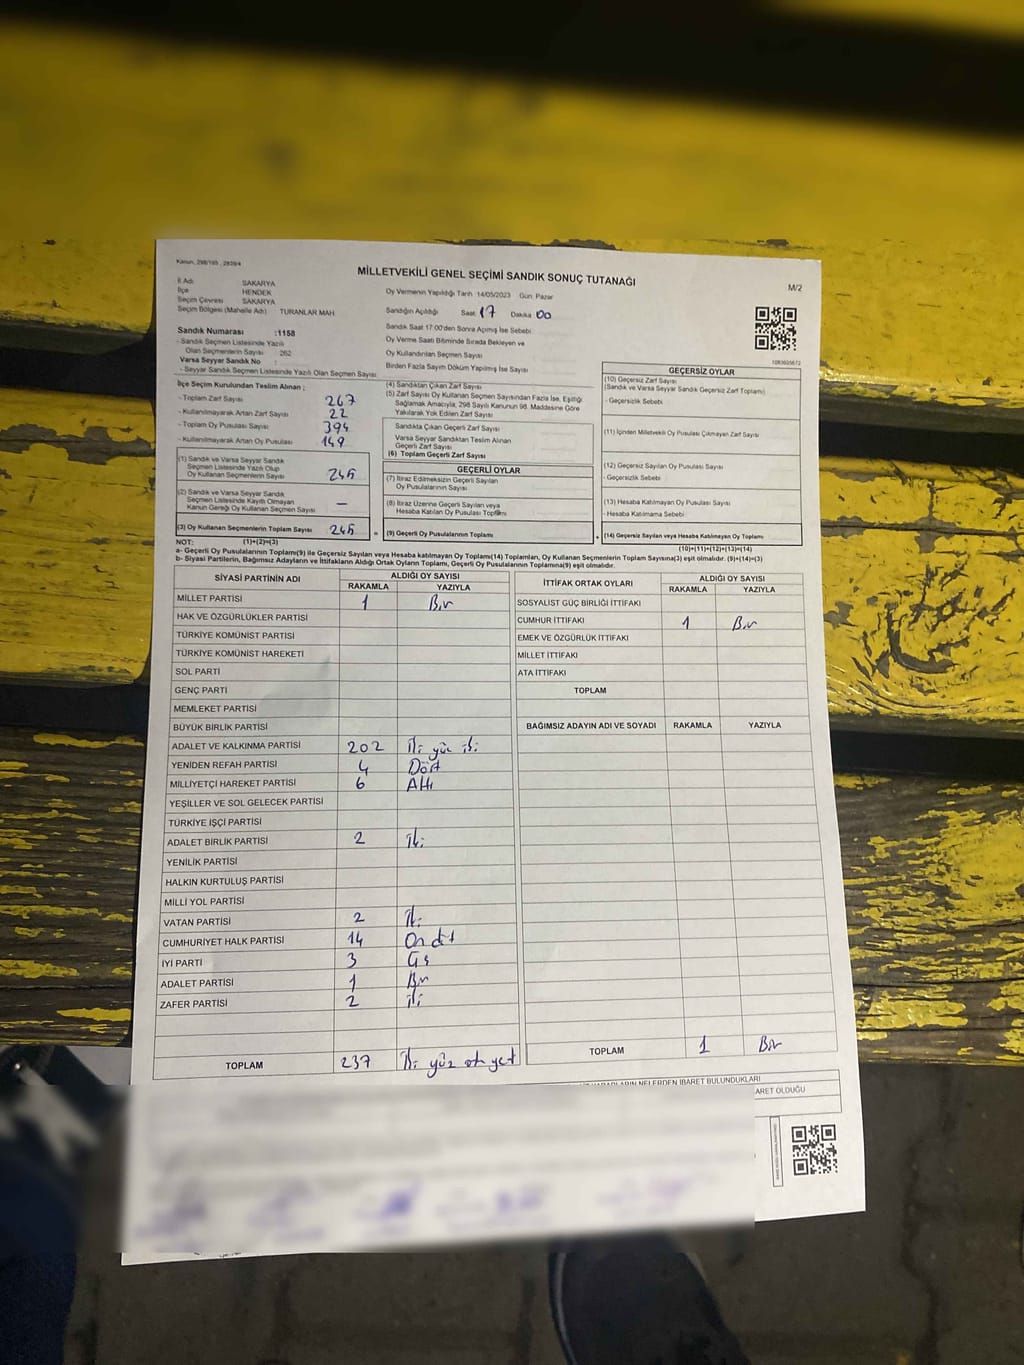 Kanun, 298/105 , 2839/4
MİLLETVEKİLİ GENEL SEÇİMİ SANDIK SONUÇ TUTANAĞI
M/2
İl Adı SAKARYA
İlçe HENDEK
Seçim Çevresi SAKARYA
Seçim Bölgesi (Mahalle Adı) TURANLAR MAH.
Oy Vermenin Yapıldığı Tarih 14/05/2023 Gün: Pazar
Sandığın Açıldığı Saat 17 Dakika 00
Sandık Saat 17:00'den Sonra Açımış İse Sebebi
Oy Verme Saati Bitiminde Sırada Bekleyen ve
Oy Kullandırılan Seçmen Sayısı
Birden Fazla Sayım Döküm Yapılmış İse Sayısı
Sandık Numarası :1158
- Sandık Seçmen Listesinde Yazılı
Olan Seçmenlerin Sayısı : 262
Varsa Seyyar Sandık No
- Seyyar Sandık Seçmen Listesinde Yazılı Olan Seçmen Sayısı
İlçe Seçim Kurulundan Teslim Alınan ;
- Toplam Zarf Sayısı 267
- Kullanılmayarak Artan Zarf Sayısı 22
- Toplam Oy Pusulası Sayısı 394
- Kullanılmayarak Artan Oy Pusulası 149
(1) Sandık ve Varsa Seyyar Sandık
Seçmen Listesinde Yazılı Olup
Oy Kullanan Seçmenlerin Sayısı 245
(2) Sandık ve Varsa Seyyar Sandık
Seçmen Listesinde Kayıtlı Olmayan
Kanun Gereği Oy Kullanan Seçmen Sayısı —
(3) Oy Kullanan Seçmenlerin Toplam Sayısı 245
(1)+(2)=(3)
(4) Sandıktan Çıkan Zarf Sayısı
(5) Zarf Sayısı Oy Kullanan Seçmen Sayısından Fazla İse, Eşitliği
Sağlamak Amacıyla, 298 Sayılı Kanunun 98. Maddesine Göre
Yakılarak Yok Edilen Zarf Sayısı
Sandıkta Çıkan Geçerli Zarf Sayısı
Varsa Seyyar Sandıktan Teslim Alınan
Geçerli Zarf Sayısı
(6) Toplam Geçerli Zarf Sayısı
GEÇERLİ OYLAR
(7) İtiraz Edilmeksizin Geçerli Sayılan
Oy Pusulalarının Sayısı
(8) İtiraz Üzerine Geçerli Sayılan veya
Hesaba Katılan Oy Pusulası Toplamı
= (9) Geçerli Oy Pusulası Toplamı
GEÇERSİZ OYLAR
(10) Geçersiz Zarf Sayısı
(Sandık ve Varsa Seyyar Sandık Geçersiz Zarf Toplamı)
- Geçersizlik Sebebi
(11) İçinden Milletvekili Oy Pusulası Çıkmayan Zarf Sayısı
(12) Geçersiz Sayılan Oy Pusulası Sayısı
- Geçersizlik Sebebi
(13) Hesaba Katılmayan Oy Pusulası Sayısı
- Hesaba Katılmama Sebebi
+ (14) Geçersiz Sayılan veya Hesaba Katılmayan Oy Toplamı
(10)+(11)+(12)+(13)=(14)
NOT:
a- Geçerli Oy Pusulalarının Toplamı(9) ile Geçersiz Sayılan veya Hesaba katılmayan Oy Toplam(14) Toplamları, Oy Kullanan Seçmenlerin Toplam Sayısına(3) eşit olmalıdır. (9)+(14)=(3)
b- Siyasi Partilerin, Bağımsız Adayların ve İttifakların Aldığı Ortak Oyların Toplamı, Geçerli Oy Pusulalarının Toplamına(9) eşit olmalıdır.
SİYASİ PARTİNİN ADI ALDIĞI OY SAYISI
RAKAMLA YAZIYLA
MİLLET PARTİSİ 1 Bir
HAK VE ÖZGÜRLÜKLER PARTİSİ
TÜRKİYE KOMÜNİST PARTİSİ
TÜRKİYE KOMÜNİST HAREKETİ
SOL PARTİ
GENÇ PARTİ
MEMLEKET PARTİSİ
BÜYÜK BİRLİK PARTİSİ
ADALET VE KALKINMA PARTİSİ 202 İki yüz iki
YENİDEN REFAH PARTİSİ 4 Dört
MİLLİYETÇİ HAREKET PARTİSİ 6 Altı
YEŞİLLER VE SOL GELECEK PARTİSİ
TÜRKİYE İŞÇİ PARTİSİ
ADALET BİRLİK PARTİSİ 2 İki
YENİLİK PARTİSİ
HALKIN KURTULUŞ PARTİSİ
MİLLİ YOL PARTİSİ
VATAN PARTİSİ 2 İki
CUMHURİYET HALK PARTİSİ 14 On dört
İYİ PARTİ 3 Üç
ADALET PARTİSİ 1 Bir
ZAFER PARTİSİ 2 iki
TOPLAM 237 İki yüz otuz yedi
İTTİFAK ORTAK OYLARI ALDIĞI OY SAYISI
RAKAMLA YAZIYLA
SOSYALİST GÜÇ BİRLİĞİ İTTİFAKI
CUMHUR İTTİFAKI 1 Bir
EMEK VE ÖZGÜRLÜK İTTİFAKI
MİLLET İTTİFAKI
ATA İTTİFAKI
TOPLAM
BAĞIMSIZ ADAYIN ADI VE SOYADI RAKAMLA YAZIYLA
TOPLAM 1 Bir
NELERDEN İBARET BULUNDUKLARI
OLDUĞU